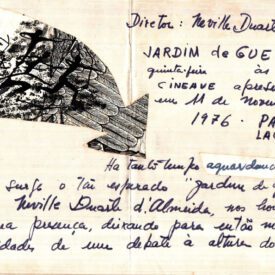 Director: Neville Duart
JARDIM de GUE
quinta-feira às
CINEAVE aprese
em 11 de Nove
1976. PA
LA
Ha tanto tempo aguardando
surge o tão esperado "jardim de
Neville Duarte d'Almeida, nos ho
a presença, deixando para então m
dades de um debate à altura do